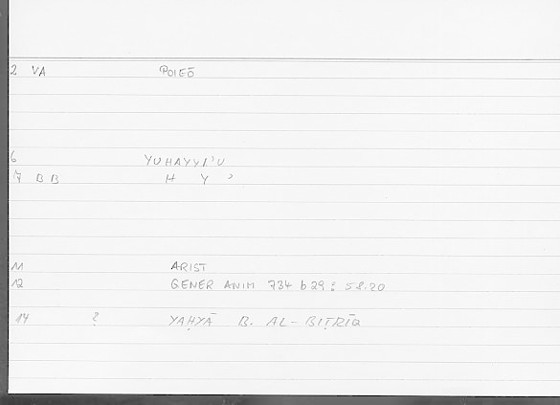 2 VA POIEŌ
6 YUHAYYI'U
7 BB H Y '
11 ARIST
12 GENER ANIM 734 b 29 : 58.20
14 ? YAḤYĀ B. AL-BIṬRĪQ